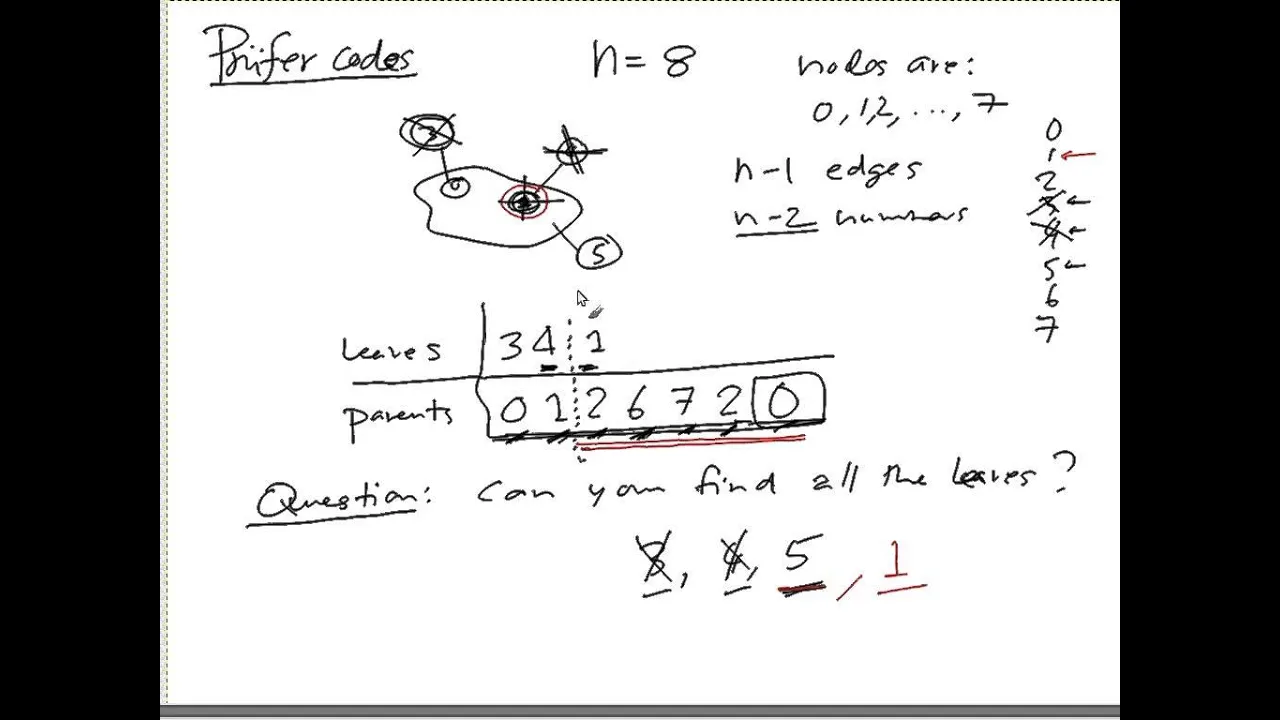 Prüfer codes
n = 8
nodes are:
0, 1, 2, ..., 7
n-1 edges
n-2 numbers
0
1 ←
2
3 ←
4 ←
5 ←
6
7
3
4
0
1
5
leaves 3 4 1
parents 0 1 2 6 7 2 0
Question: can you find all the leaves?
3, 4, 5, 1